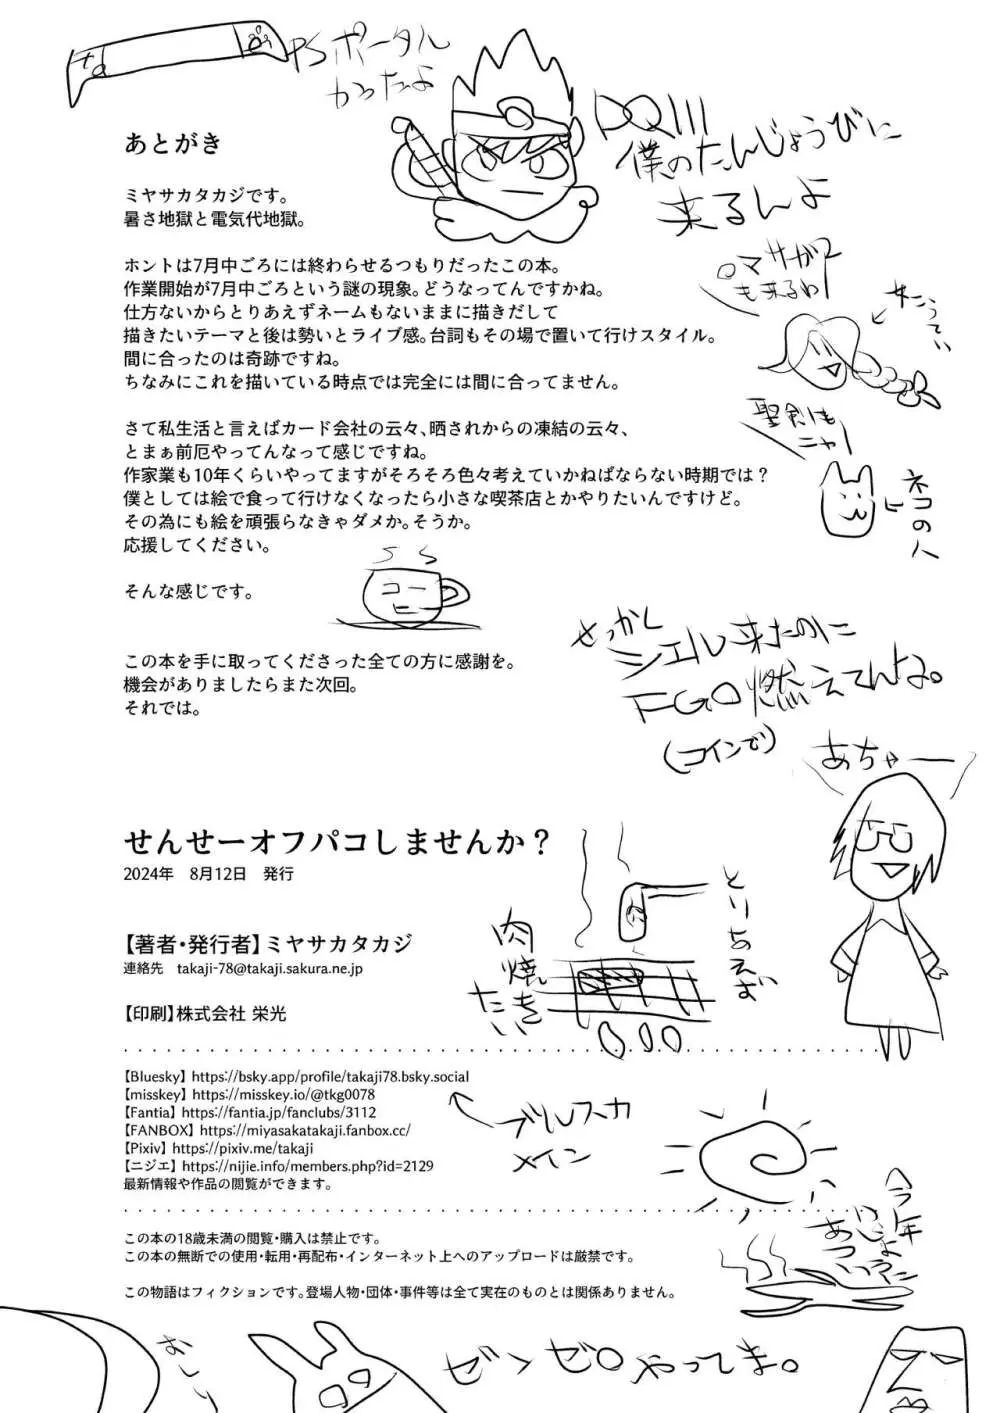 PSポータル
かったよ
DQIII
僕のたんじょうびに
来るんよ
あとがき
ミヤサカタカジです。
暑さ地獄と電気代地獄。
ホントは7月中ごろには終わらせるつもりだったこの本。
作業開始が7月中ごろという謎の現象。どうなってんですかね。
仕方ないからとりあえずネームもないままに描きだして
描きたいテーマと後は勢いとライブ感。台詞もその場で置いて行けスタイル。
間に合ったのは奇跡ですね。
ちなみにこれを描いている時点では完全には間に合ってません。
ロマサガ2
も来るわ
さて私生活と言えばカード会社の云々、晒されからの凍結の云々、
とまぁ前厄やってんなって感じですね。
作家業も10年くらいやってますがそろそろ色々考えていかねばならない時期では？
僕としては絵で食って行けなくなったら小さな喫茶店とかやりたいんですけど。
その為にも絵を頑張らなきゃダメか。そうか。
応援してください。
聖剣も
ニャー
ネコの人
そんな感じです。
コー
ヒー
この本を手に取ってくださった全ての方に感謝を。
機会がありましたらまた次回。
それでは。
せっかく
シエル来たのに
FGO燃えてんよ。
(コインで)
あちゃー
せんせーオフパコしませんか？
2024年　8月12日　発行
【著者・発行者】ミヤサカタカジ
連絡先　takaji-78@takaji.sakura.ne.jp
【印刷】株式会社 栄光
とりちえず
肉焼きたい
【Bluesky】https://bsky.app/profile/takaji78.bsky.social
【misskey】https://misskey.io/@tkg0078
【Fantia】https://fantia.jp/fanclubs/3112
【FANBOX】https://miyasakatakaji.fanbox.cc/
【Pixiv】https://pixiv.me/takaji
【ニジエ】https://nijie.info/members.php?id=2129
最新情報や作品の閲覧ができます。
ブルスカ
メイン
今年
この本の18歳未満の閲覧・購入は禁止です。
この本の無断での使用・転用・再配布・インターネット上へのアップロードは厳禁です。
この物語はフィクションです。登場人物・団体・事件等は全て実在のものとは関係ありません。
おしり
ゼンゼロやってま。